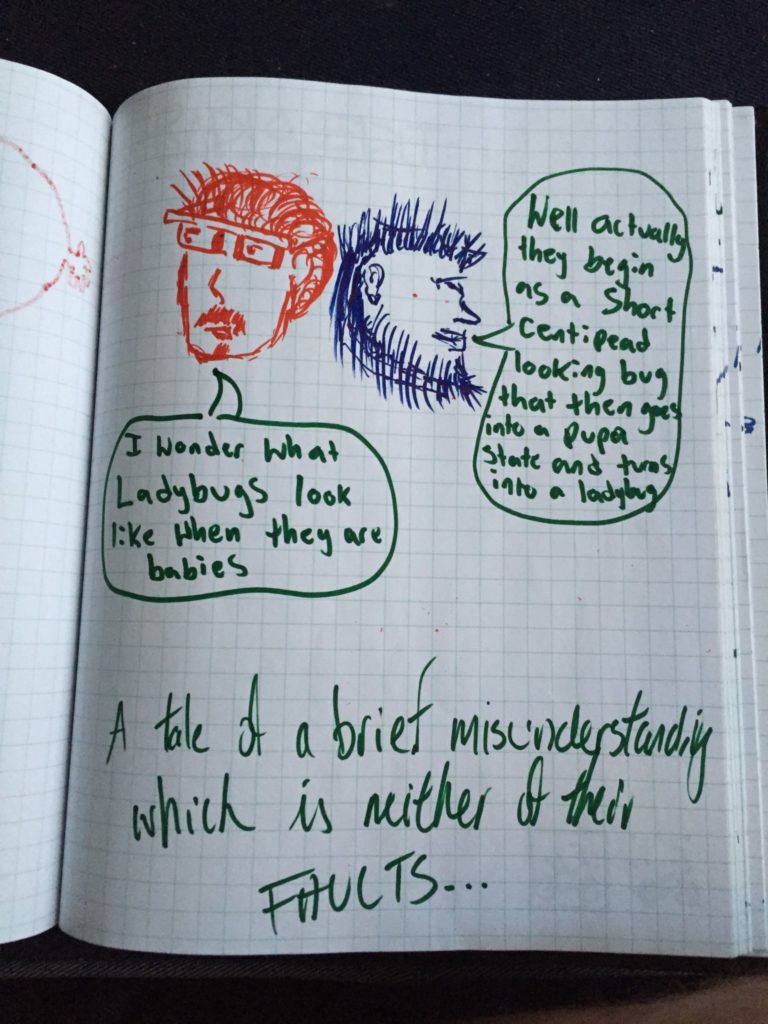 I wonder what
Ladybugs look
like when they are
babies
Well actually
they begin
as a short
Centipead
looking bug
that then goes
into a pupa
state and turns
into a ladybug
A tale of a brief misunderstanding
which is neither of their
FAULTS...